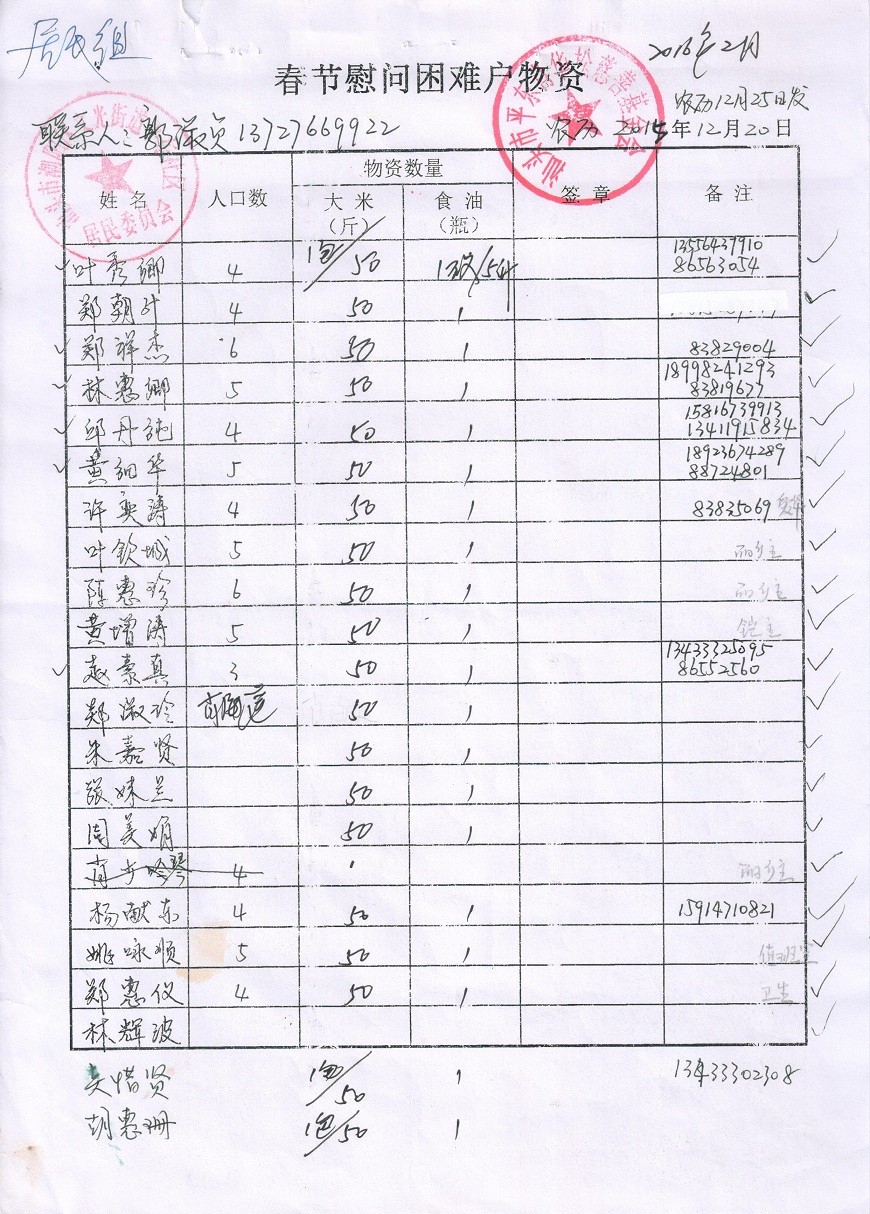 居民组
2016年2月
春节慰问困难户物资
农历12月25日发
联系人：郭淑贞 13727669922
农历 2015年12月20日
居民委员会
姓名 人口数 物资数量 签章 备注
大米（斤） 食油（瓶）
13556437910
叶秀卿 4 1包/50 1 86563054
郑朝 4 50 1
郑祥杰 6 50 1 83829004
18998241293
林惠卿 5 50 1 83819677
15816739913
邱丹纯 4 50 1 13411915834
18923674289
黄细华 5 50 1 88724801
许奕涛 4 50 1 83835069
叶钦城 5 50 1
陈惠珍 6 50 1
黄增涛 5 50 1
13433325095
赵素真 3 50 1 86552560
郑淑玲 50 1
朱嘉贤 50 1
张妹兰 50 1
周美娟 50 1
4
杨献东 4 50 1 15914710821
姚咏顺 5 50 1 值班室
郑惠仪 4 50 1 卫生
林辉波
惜贤 1包/50 1 13433302308
胡惠珊 1包/50 1